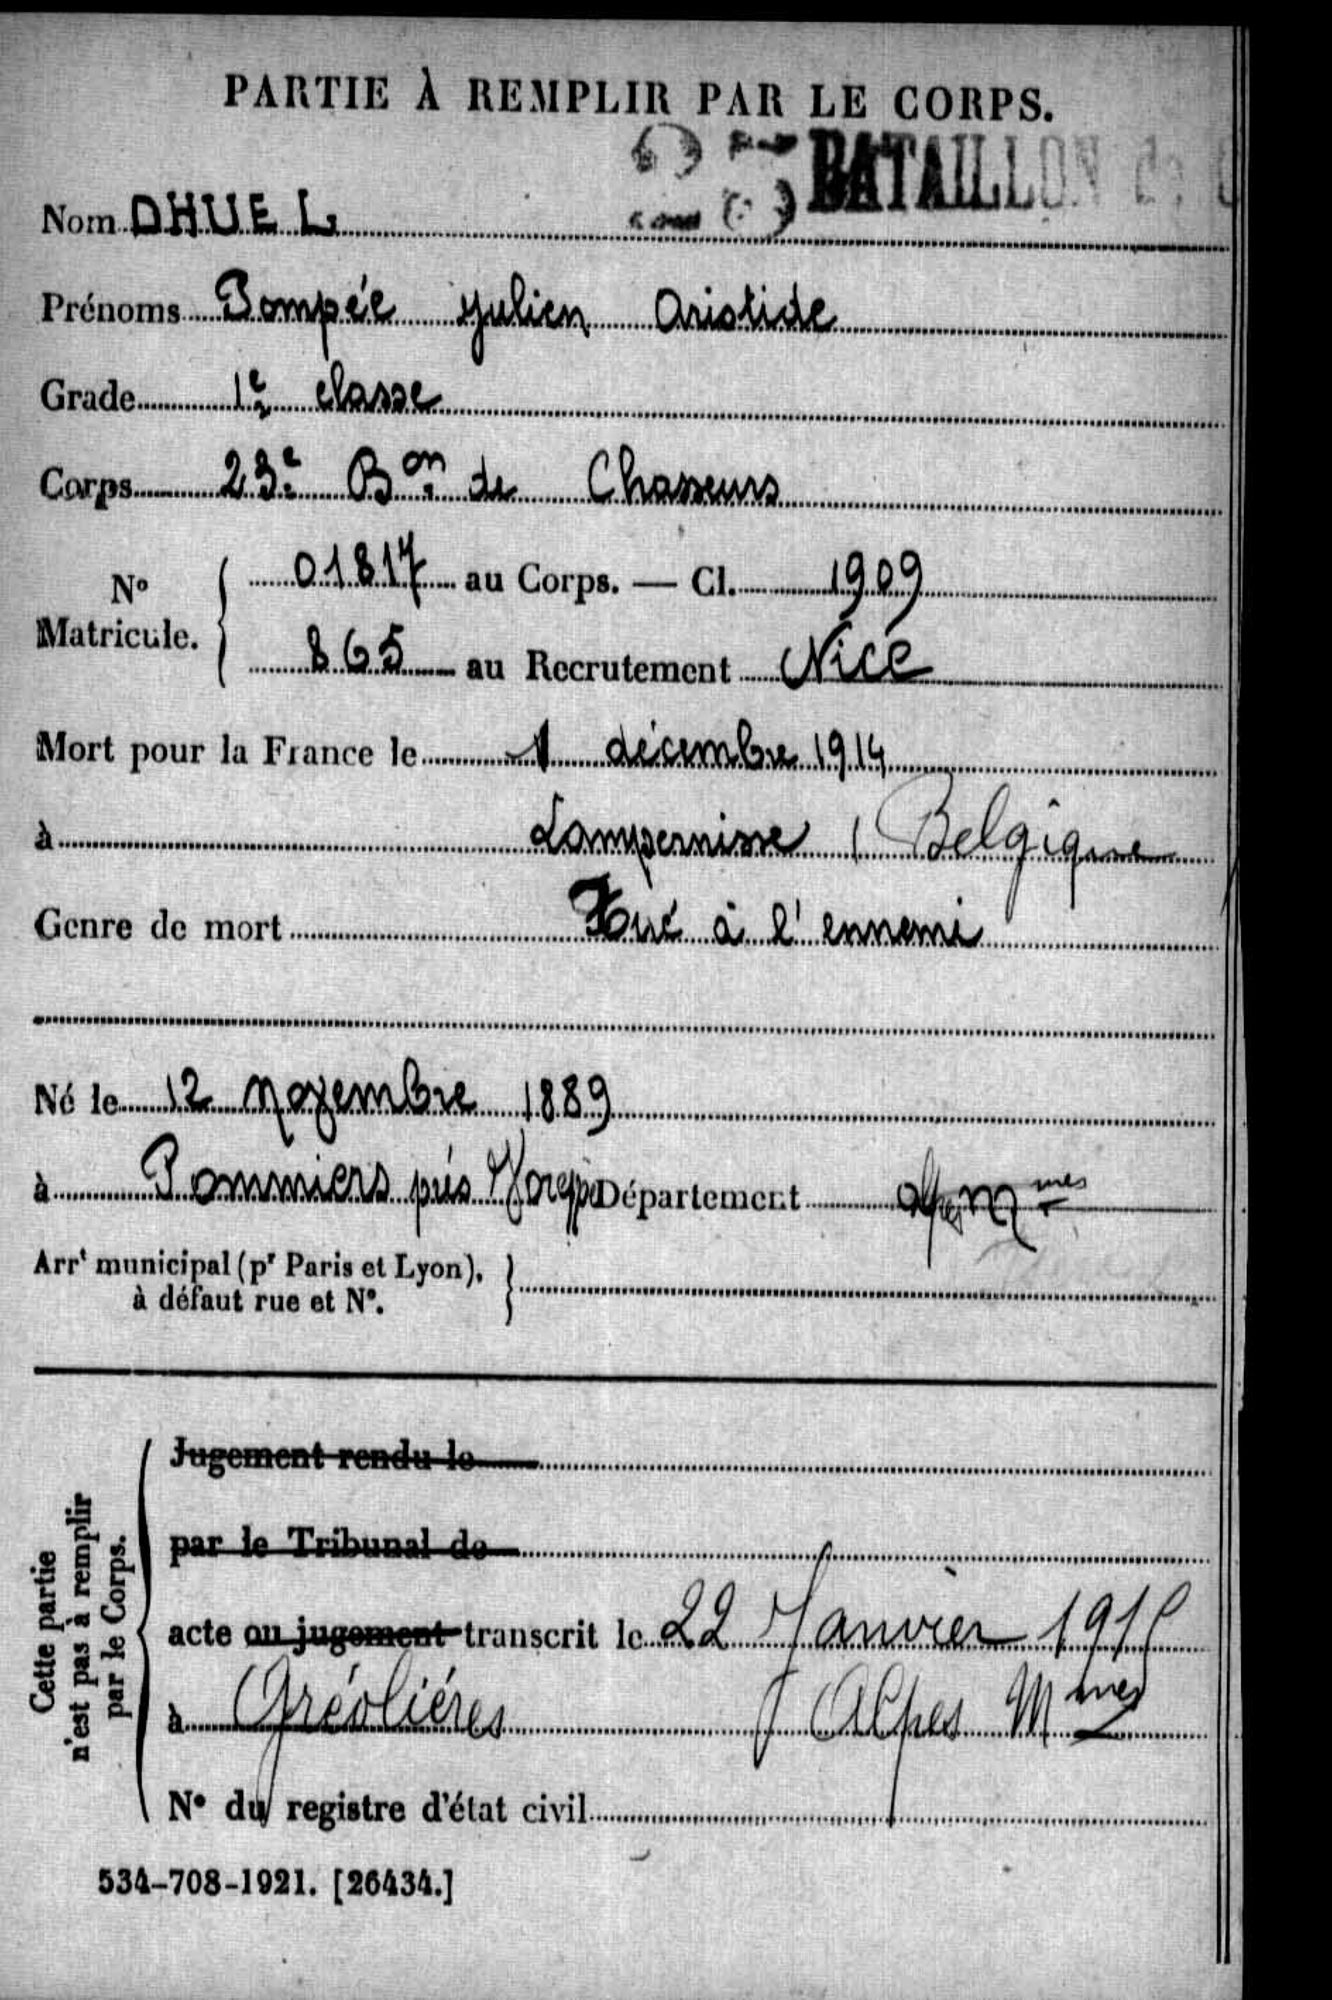 PARTIE À REMPLIR PAR LE CORPS.
23 BATAILLON de
Nom DHUEL
Prénoms Pompée Julien Aristide
Grade 1e classe
Corps 23e Bon de Chasseurs
No Matricule. { 01817 au Corps. — Cl. 1909
865 au Recrutement Nice
Mort pour la France le 1 décembre 1914
à Lampernisse ( Belgique
Genre de mort Tué à l'ennemi
Né le 12 Novembre 1889
à Pommiers près Voreppe Département Alpes Mmes
Arrt municipal (pr Paris et Lyon), à défaut rue et No. }
Cette partie n'est pas à remplir par le Corps.
Jugement rendu le
par le Tribunal de
acte ou jugement transcrit le 22 Janvier 1915
à Gréolières Alpes Mmes
No du registre d'état civil
534-708-1921. [26434.]